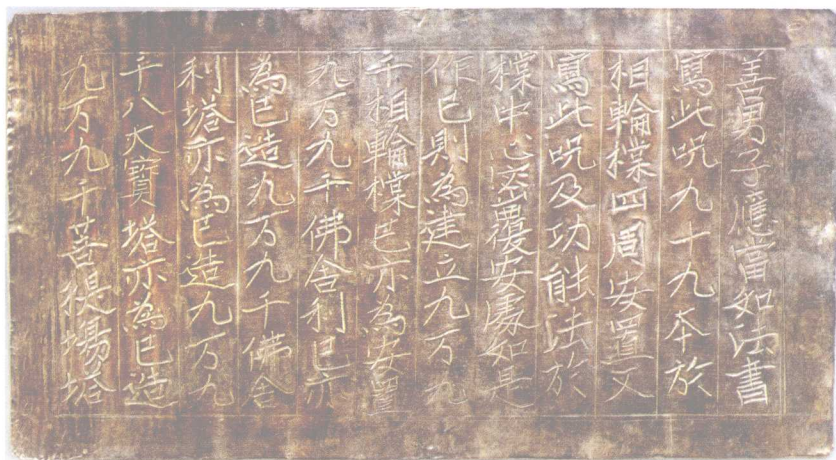 善男子應當如法書
寫此呪九十九夲於
相輪樘四周安置又
寫此呪及功能法於
樘中心密覆安處如是
作已則為建立九万九
千相輪樘已亦為安置
九万九千佛舍利已亦
為已造九万九千佛舍
利塔亦為已造九万九
千八大寶塔亦為已造
九万九千菩提場塔